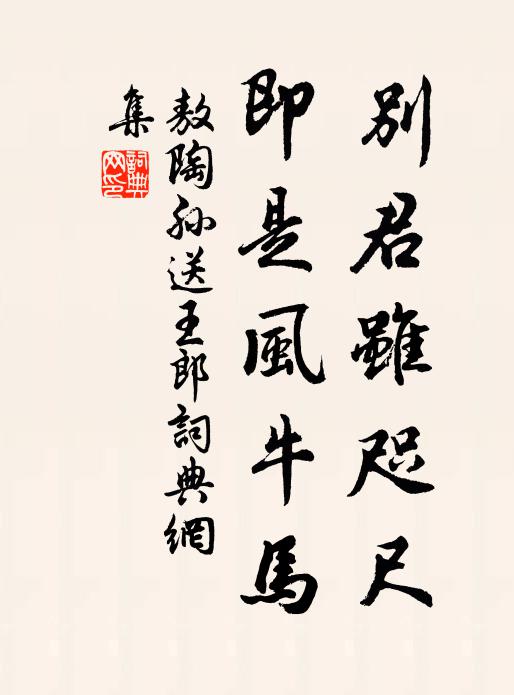 別君雖咫尺
即是風牛馬
敖陶孫送王郎詞典網
集
詞典
网印